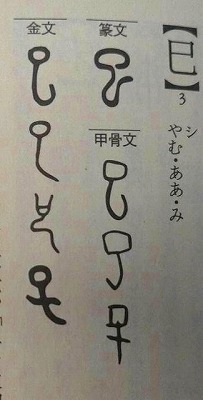 【巳】3
シ
やむ・ああ・み
篆文
甲骨文
金文